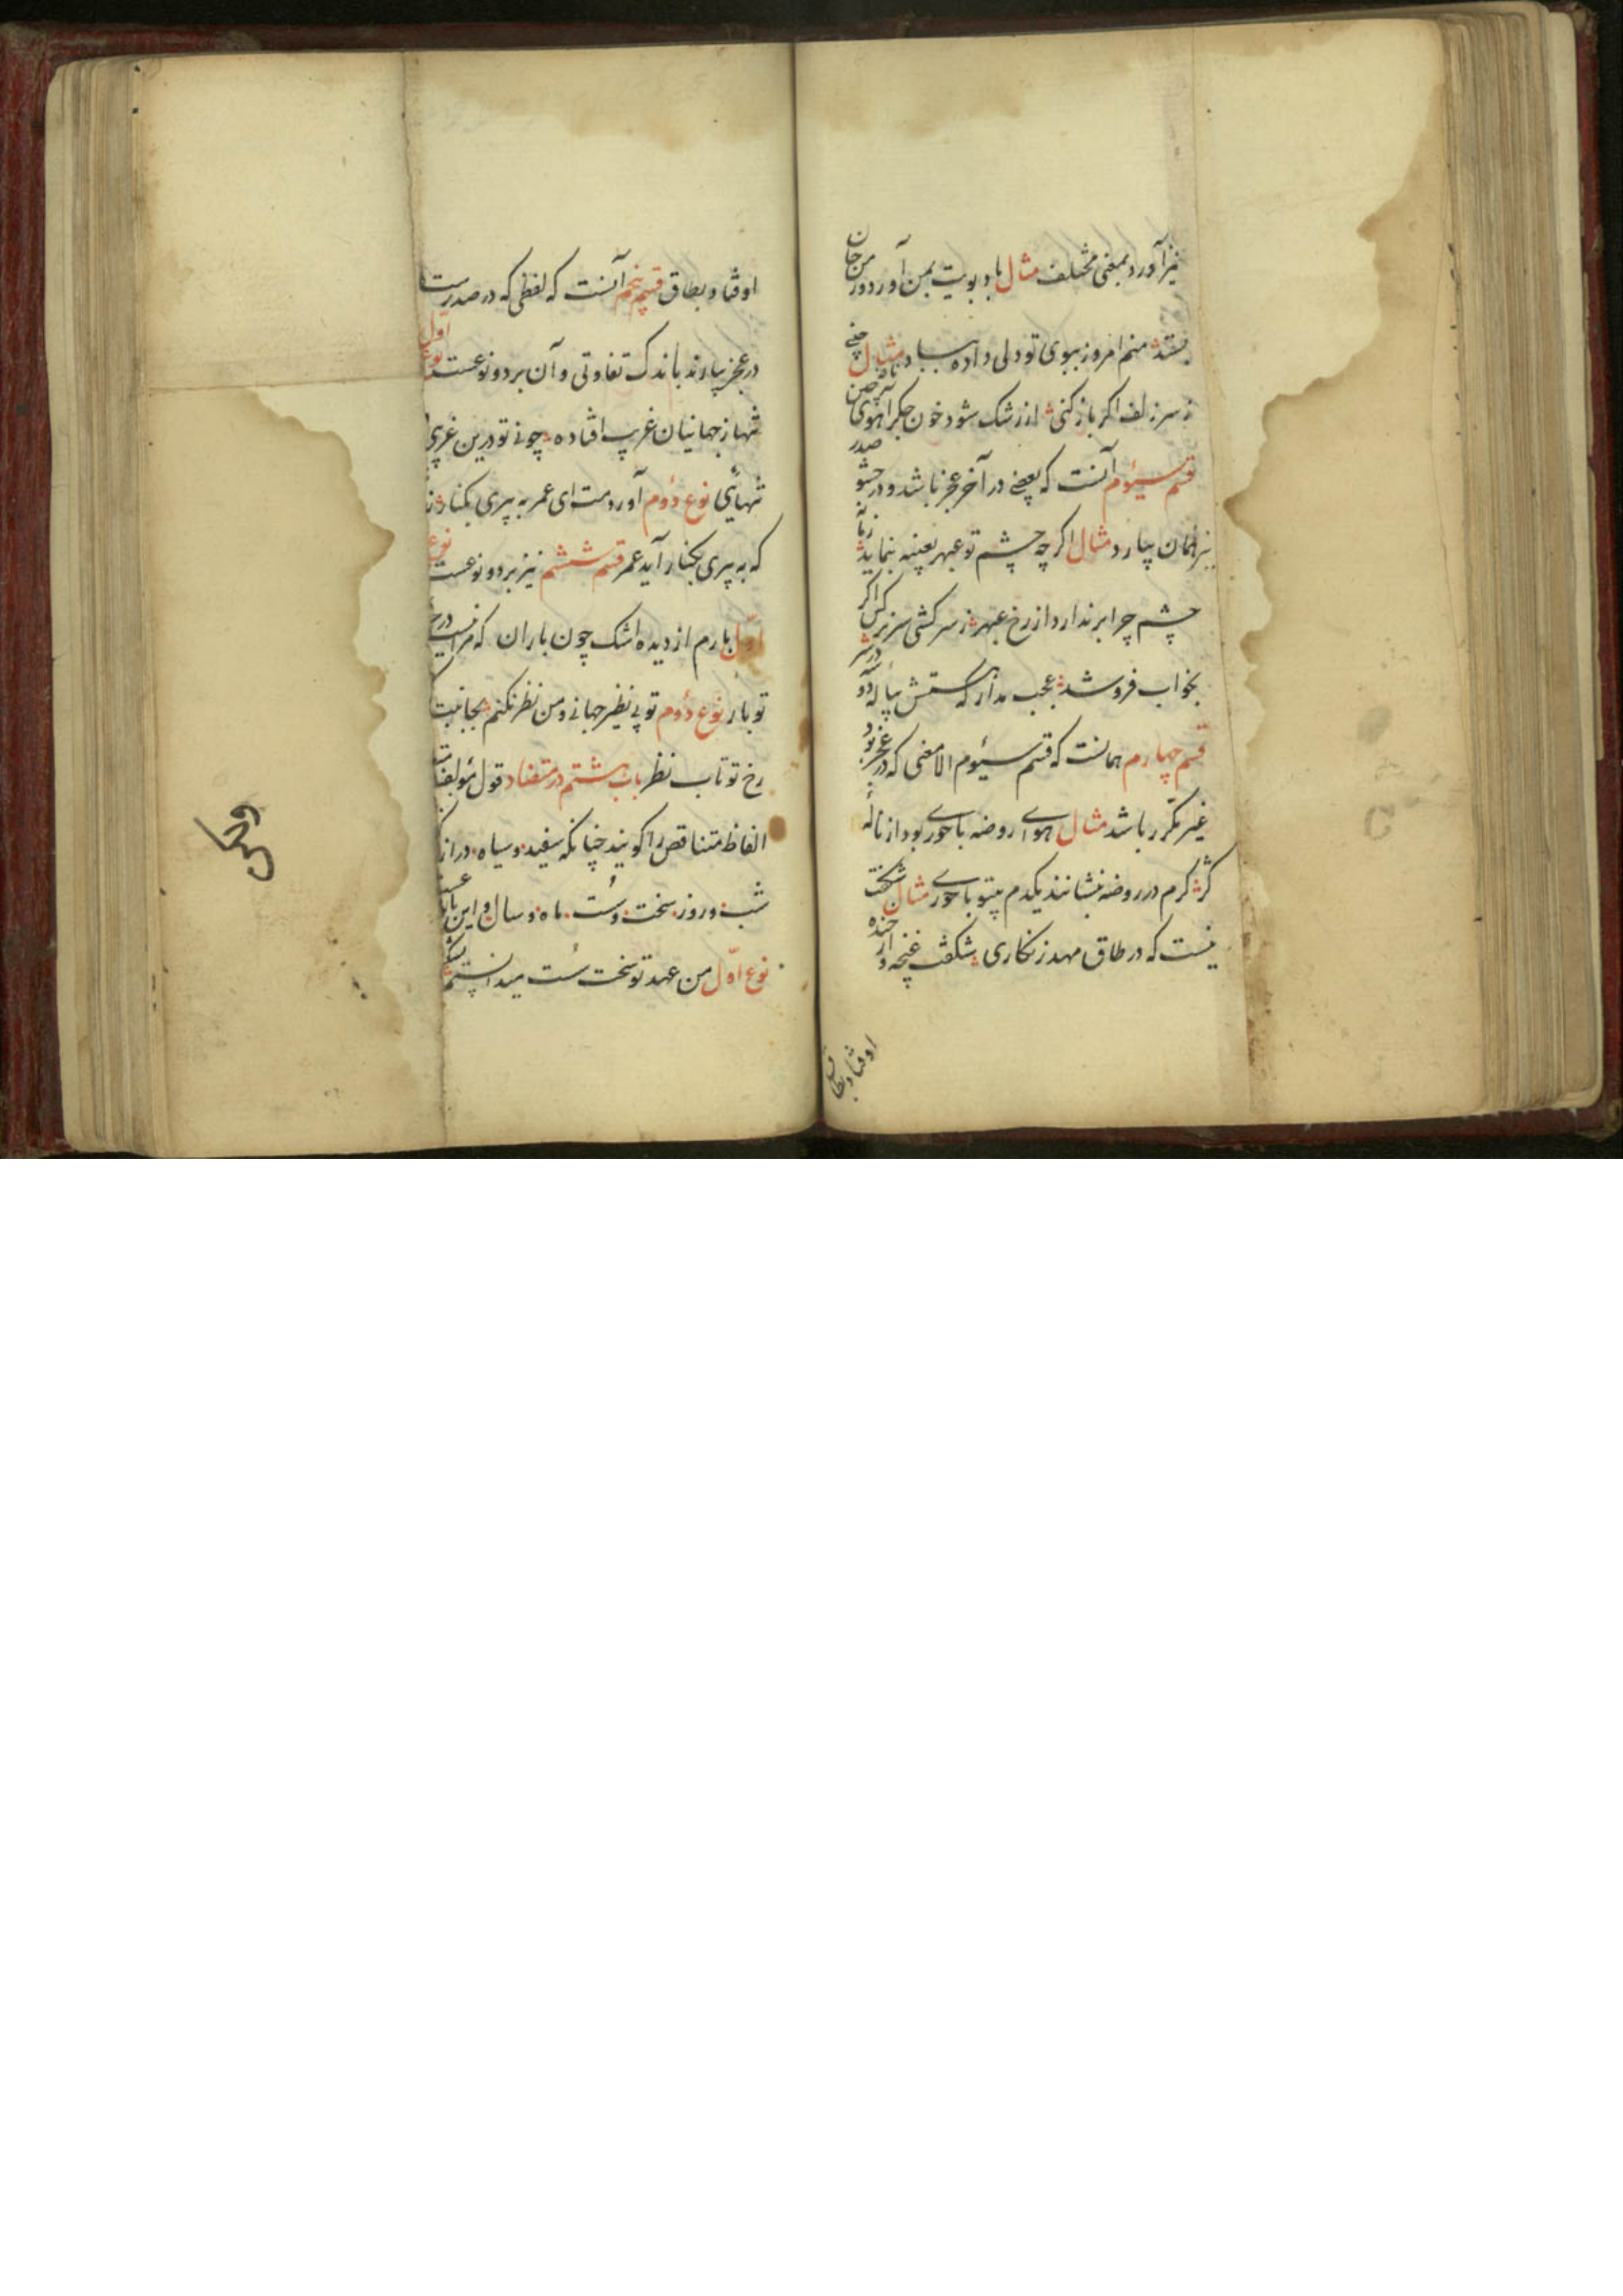 نیز آورد بمعنی مختلف مثال باد بویت بمن آورد و من جان
بستد منم امروز ببوی تو دلی داده بباد مثال چینی
ز سر زلف اگر باز کنی از رشک شود خون جگر آهوی چین
قسم سیوم آنست که بعضی در آخر عجز باشد و در حشو صدر
نیز همان بیارد مثال اگر چه چشم تو عبهر بعینه بنماید
چشم چرا بر ندارد از رخ عبهر ز سرکشی سر نرگس اگر
بخواب فرو شد عجب مدار که مستش پیاله در سر
قسم چهارم همانست که قسم سیوم الا معنی که در عجز بود
غیر مکرر باشد مثال هوای روضه با حور بود از ناله
گر کرم در روضه بنشانند یکدم بیتو با حوری مثال شگفت
نیست که در طاق مهد زنگاری شکفت غنچه و از خنده
اوفتاد بطاق
اوفتاد بطاق قسم پنجم آنست که لفظی که در صدرست
در عجز بیارند باندک تفاوتی و آن بر دو نوعست نوع اول
تنها ز جهانیان غریب افتاده چونی تو درین غریبی
تنهائی نوع دوم آوردمت ای عمر به پیری بکنار
که به پیری بکنار آید عمر قسم ششم نیز بر دو نوعست نوع
اول بارم از دیده اشک چون باران که مرا نیست در
تو بار نوع دوم تو بی نظیر جهانی و من نظر نکنم بجانبت
رخ تو تاب نظر باب هشتم در متضاد قول مؤلف
الفاظ متناقص را گویند چنانکه سفید و سیاه دراز
شب و روز سخت و سست ماه و سال و این
نوع اول من عهد تو سخت سست میدانستم